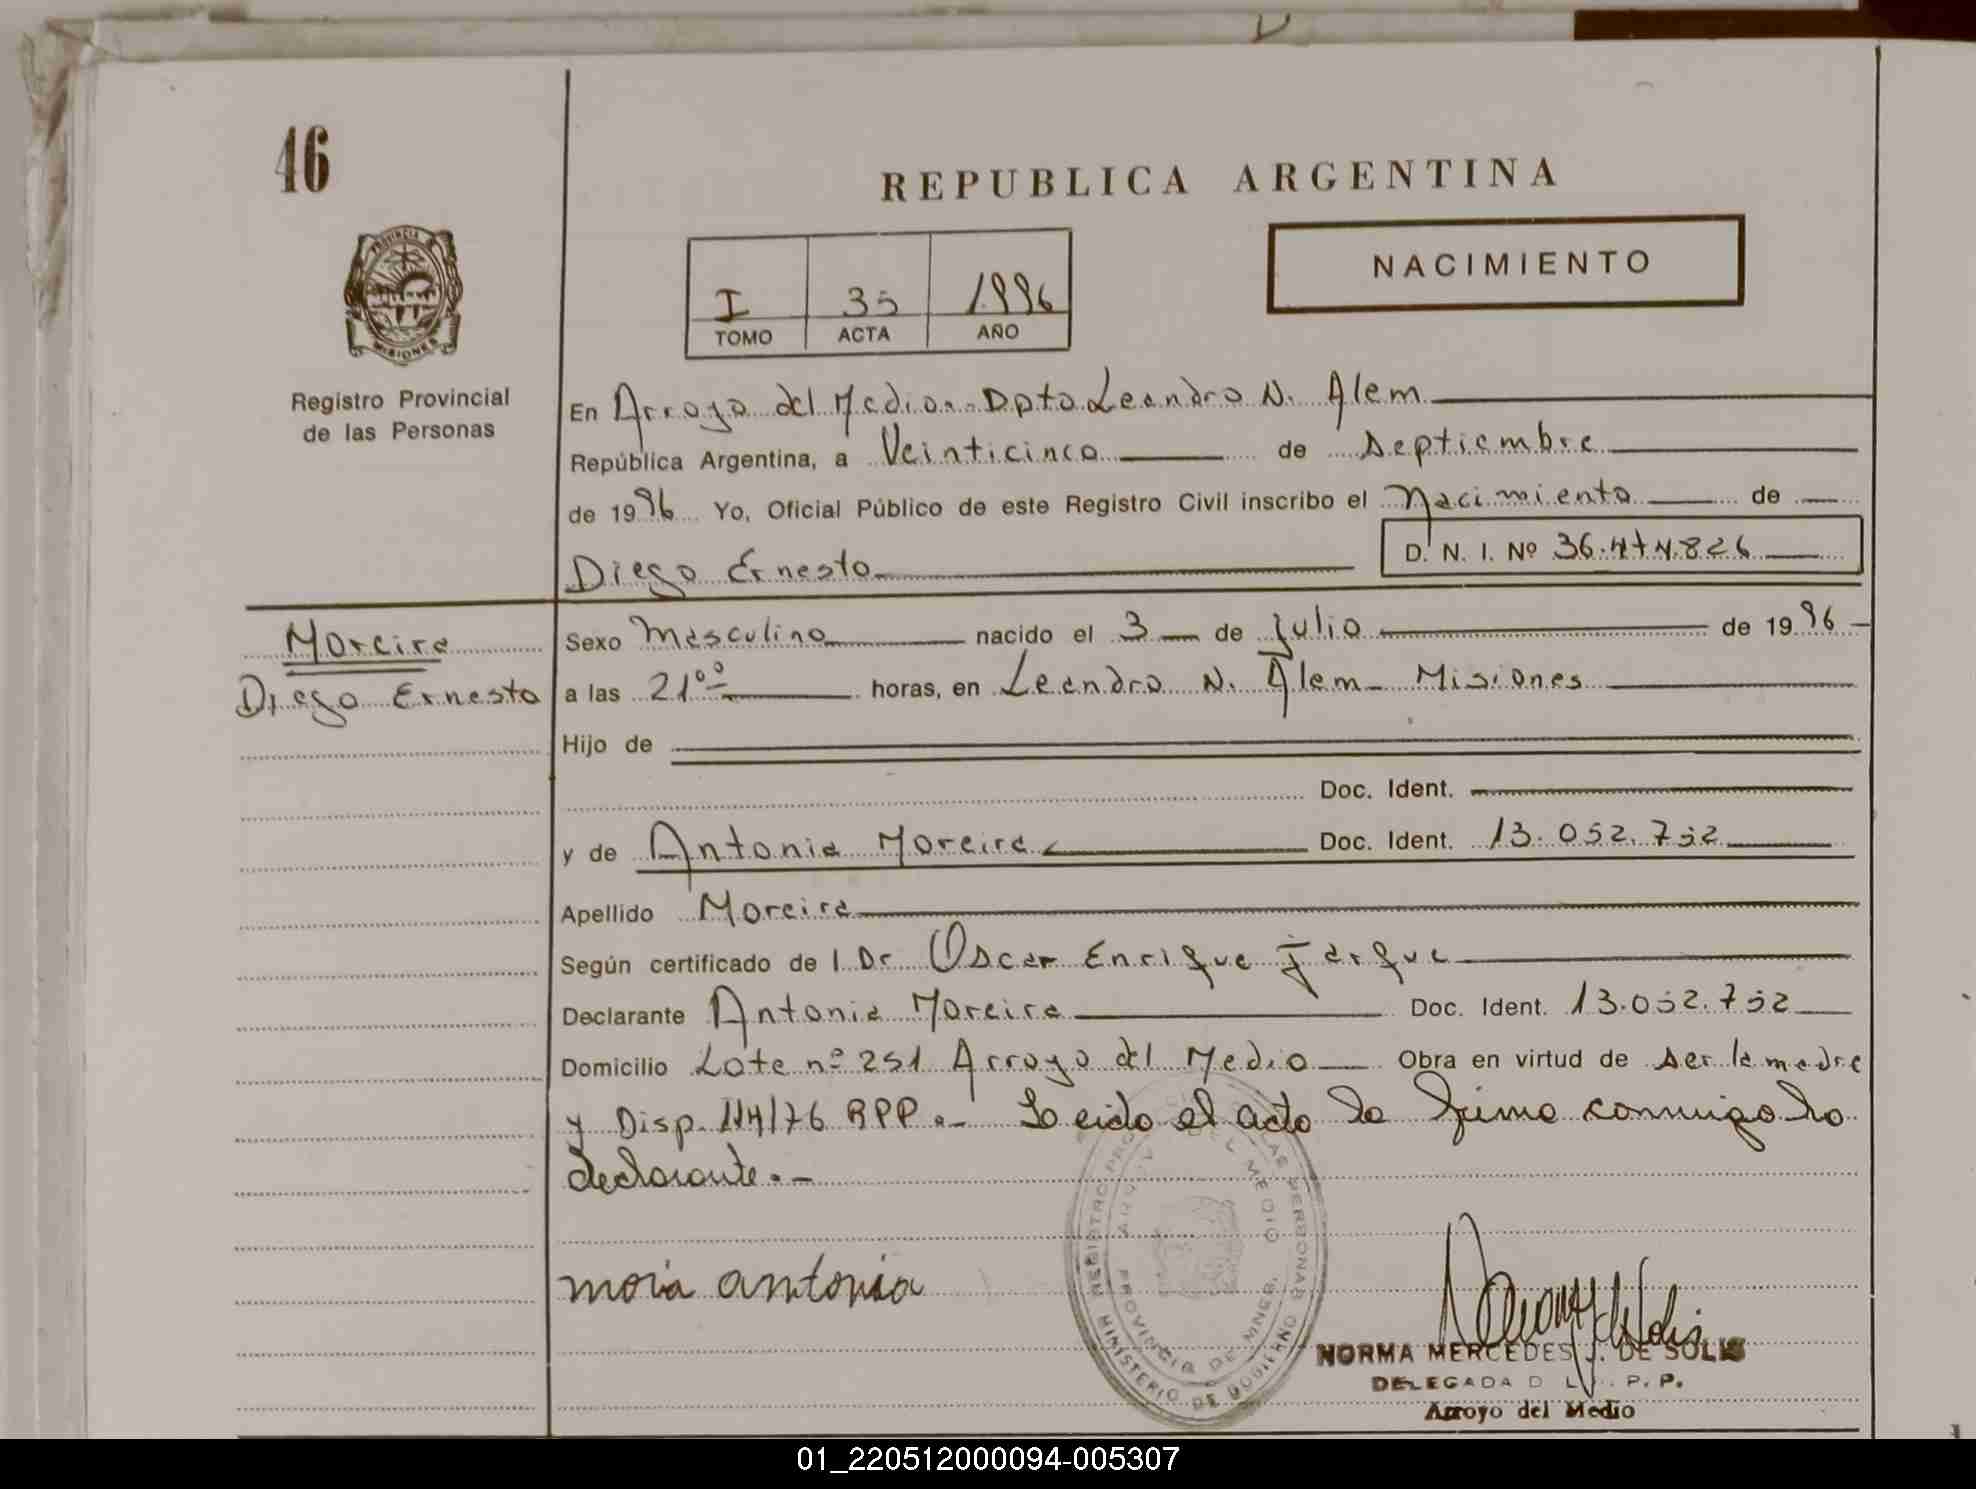 46
REPUBLICA ARGENTINA
PROVINCIA D
MISIONES
NACIMIENTO
I 35 1996
TOMO ACTA AÑO
Registro Provincial
de las Personas
En Arroyo del Medio.- Dpto Leandro N. Alem
República Argentina, a Veinticinco de Septiembre
de 1996 Yo, Oficial Público de este Registro Civil inscribo el Nacimiento de
Diego Ernesto D. N. I. Nº 36.474.826
Moreira
Diego Ernesto
Sexo Masculino nacido el 3 de Julio de 1996
a las 21⁰⁰ horas, en Leandro N. Alem - Misiones
Hijo de
Doc. Ident.
y de Antonia Moreira Doc. Ident. 13.052.752
Apellido Moreira
Según certificado de l Dr Oscar Enrique Jarque
Declarante Antonia Moreira Doc. Ident. 13.052.752
Domicilio Lote nº 251 Arroyo del Medio Obra en virtud de ser la madre
y Disp. 114/76 RPP.- Leido el acto lo firma conmigo la
declarante.-
antonia
REGISTRO PROVINCIAL DE LAS PERSONAS
MINISTERIO DE GOBIERNO
ARROYO DEL MEDIO
PROVINCIA DE MNES.
NORMA MERCEDES J. DE SOLIS
DELEGADA D L P. P.
Arroyo del Medio
01_220512000094-005307